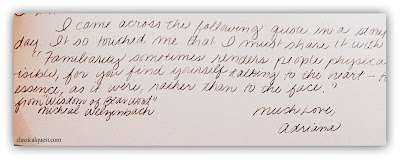 I came across the following quote in a story
day. It so touched me that I must share it with
"Familiarity sometimes renders people physica
visible, for you find yourself talking to the heart – t
essence, as it were, rather than to the face."
from Wisdom of
Micheal Weezenbach
Much Love,
Adriana
classicalquest.com